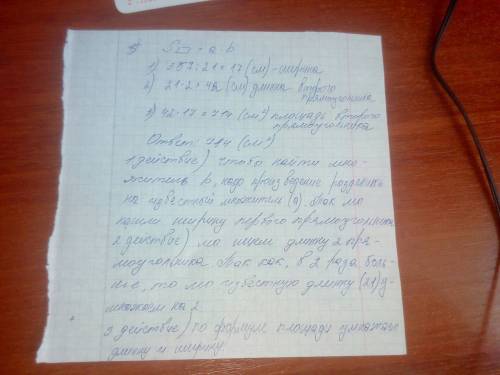 S▭ = a·b
1) 357:21=17 (см) - ширина
2) 21·2=42 (см) длина второго
прямоугольника
3) 42·17=714 (см²) площадь второго
прямоугольника
Ответ: 714 (см²)
1 действие) чтобы найти мно-
житель b, надо произведение разделить
на известный множитель (a). Так мы
нашли ширину первого прямоугольника
2 действие) мы ищем длину 2 пря-
моугольника. Так как, в 2 раза боль-
ше, то мы известную длину (21) у-
множаем на 2
3 действие) по формуле площади умножаем
длину и ширину